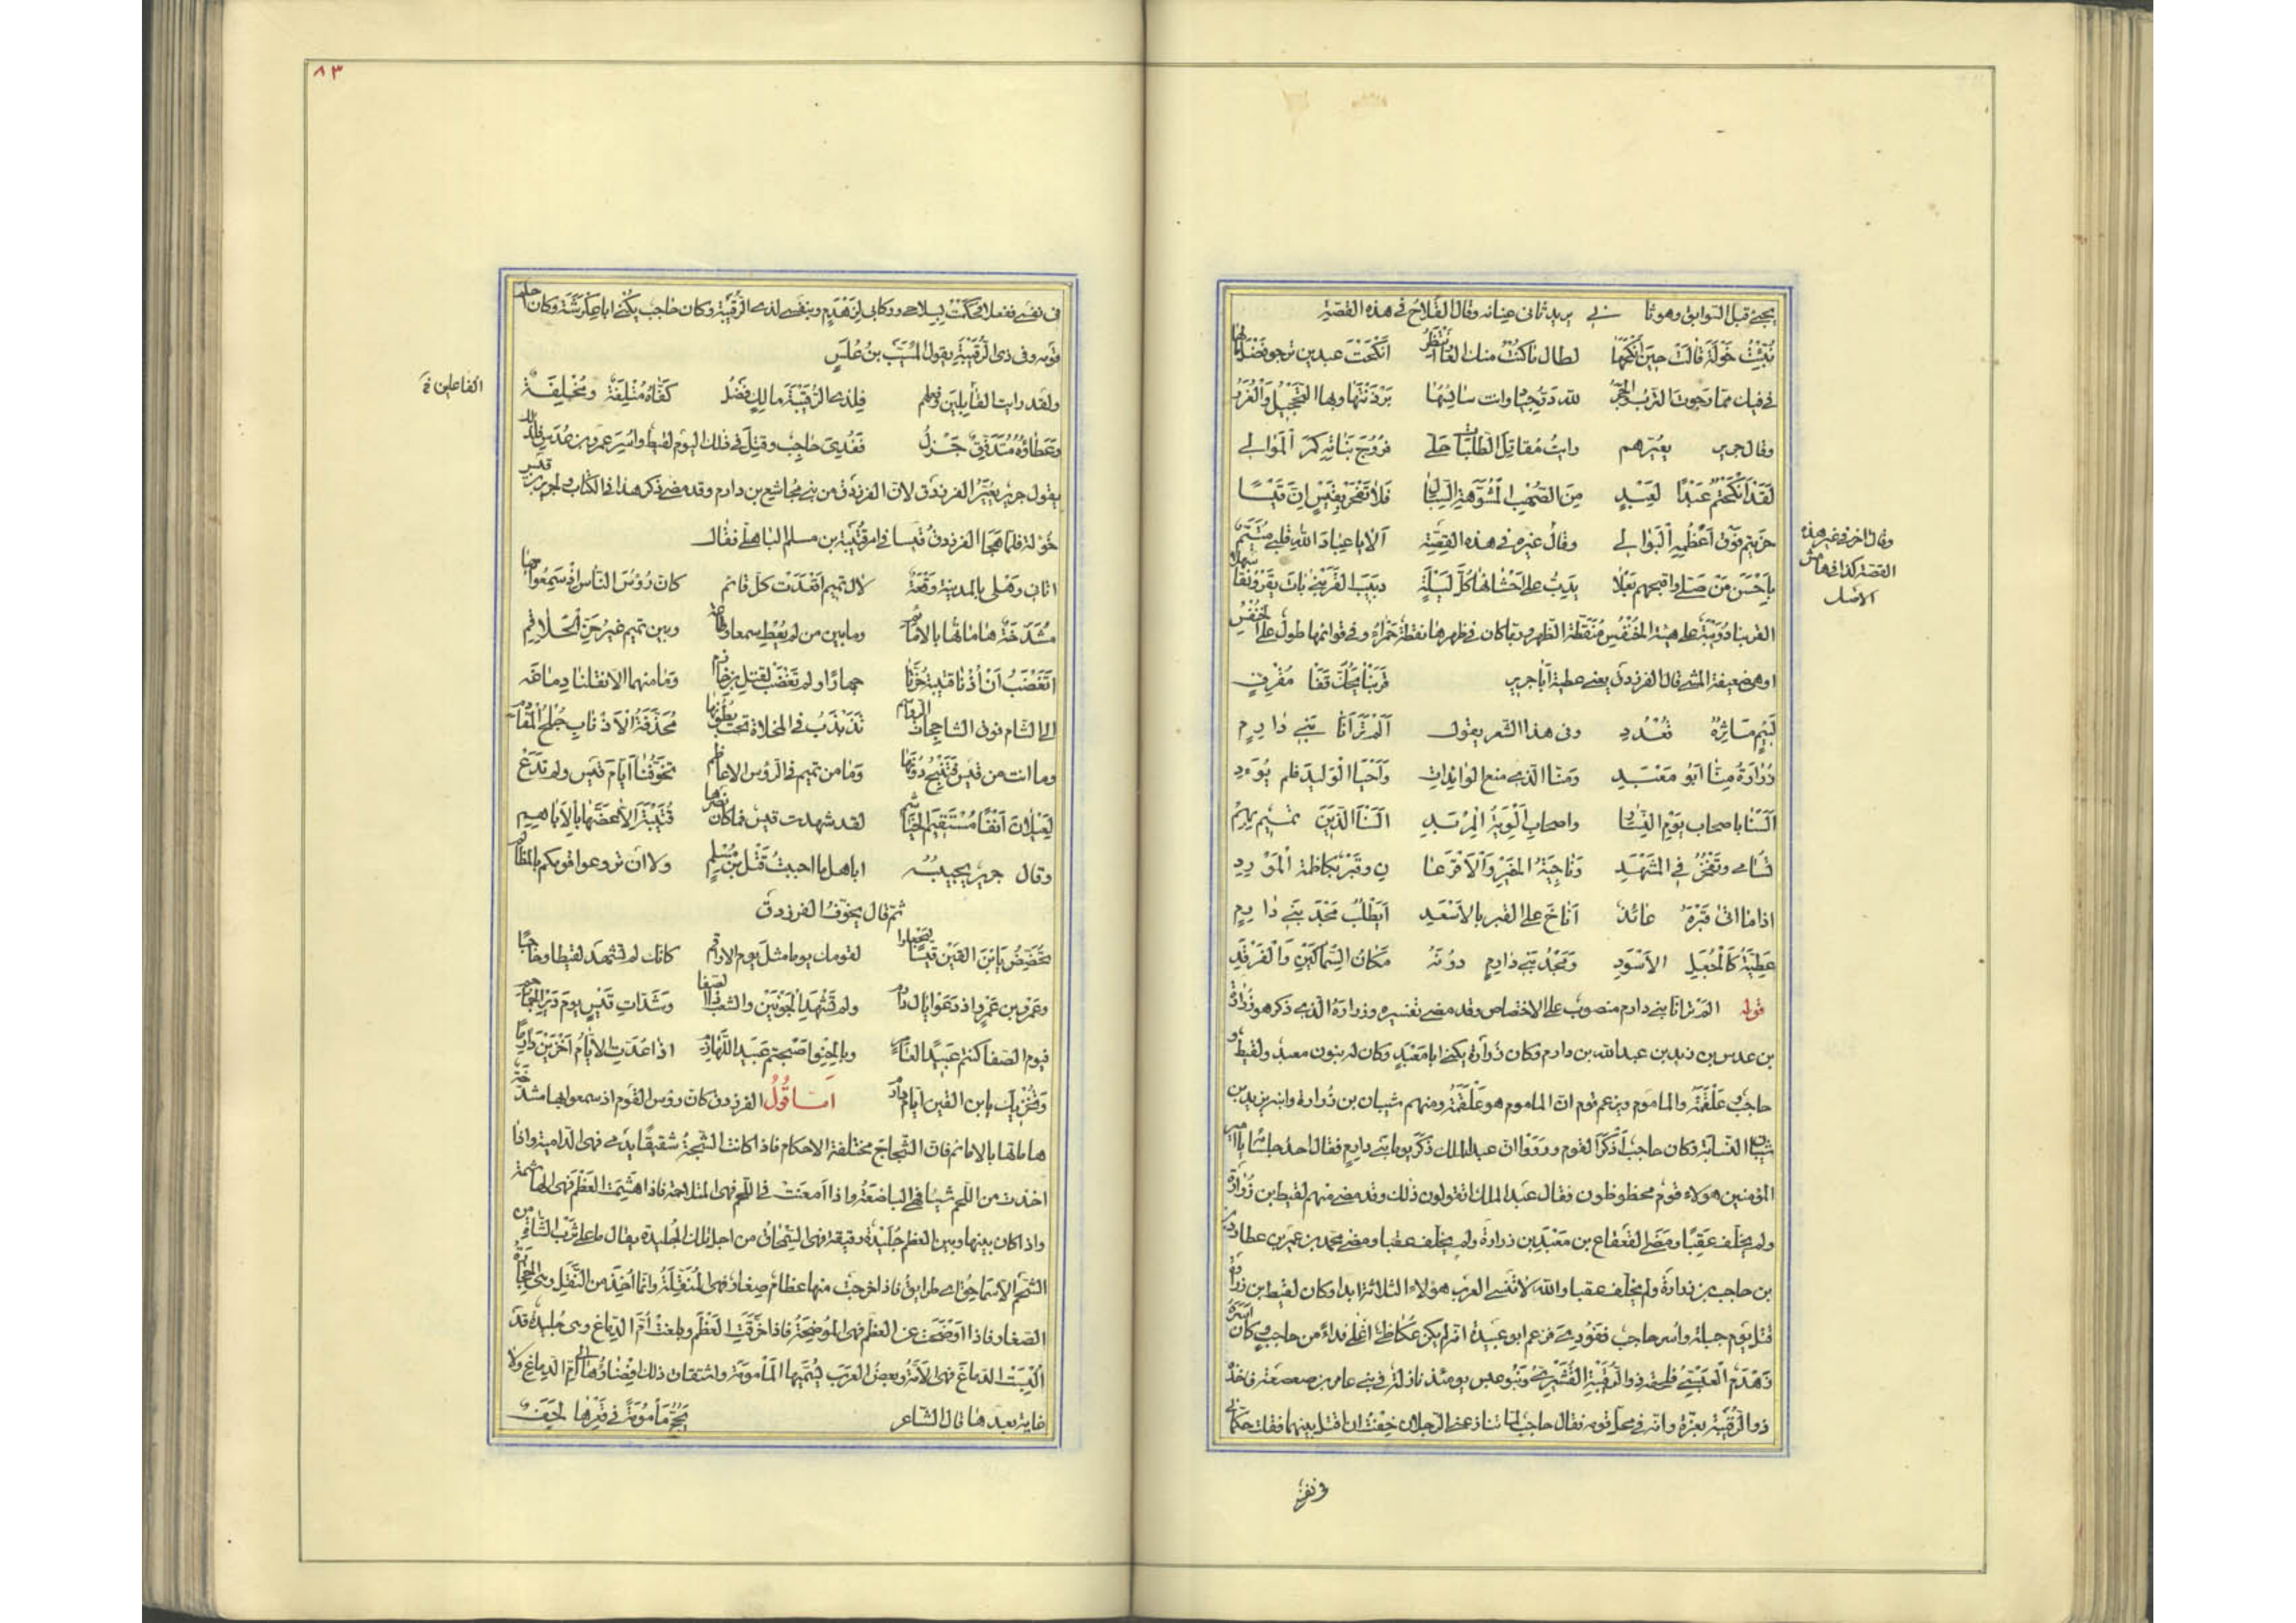 يجئ قبل السوابق وهو ثانى يريد ثانى عنانه وقال القلاخ فى هذه القصة
نُبِّئتُ خَوْلَةَ قالَت حينَ أنكَحَها لطال ما كنتُ منك العار أنتظرُ أنكَحْتَ عبدين ترجو فضل مالهما
فى فيك مما رجوت الترب والحجرُ لله درّ جياد انت سائسها برذنتها وبها التحجيل والغرر
وقال جرير يعيّرهم رايتُ مقاتل الطلبات حلّى فروج بناته كمر الموالى
لقد انكحتم عبدًا لعبدٍ من الصهب المشوّهة السبال فلا تفخر بقيسٍ انّ قيسًا
خريتم فوق اعظمه البوالى وقال غيره فى هذه القصة ألا يا عباد الله قلبى متيّم
باحسن من صلى واقبحهم بعلا يدبّ على احشائها كلّ ليلة دبيب القرنبى بات يقرو نقا سهلا
القرنبا دُوَيبّة على هيئة الخنفس منقّطة الظهر وربما كان فى ظهرها نقطة حمراء وفى قوائمها طول على الخنفس
وهى ضعيفة المشى قال الفرزدق يعنى عطية أبا جرير قرنبا يحكّ قفا مقرف
لئيم مآثره قعدد وفى هذا الشعر يقول ألم تر أنّا بنى دارم
زرارة منّا ابو معبد ومنّا الذى منع الوائدات وأحيا الوليد فلم يوءد
ألسنا باصحاب يوم النسار واصحاب الوية المربد ألسنا الذين تميم بهم
تسامى وتفخر فى المشهد وناجية الخير والاقرعان وقبر بكاظمة المورد
اذا ما اتى قبره عائذ اناخ على القبر بالاسعد أيطلب مجد بنى دارم
عطيّة كالجعل الاسود ومجد بنى دارم دونه مكان السماكين والفرقد
قوله الم تر انا بنى دارم منصوب على الاختصاص وقد مضى تفسيره وزرارة الذى ذكر هو زرارة
بن عدس بن زيد بن عبد الله بن دارم وكان زرارة يكنى ابا معبد وكان له بنون معبد ولقيط و
حاجب وعلقمة والماموم وزعم قوم ان الماموم هو علقمة ومنهم شيبان بن زرارة وابنه يزيد بن
شيبان النسابة وكان حاجب أذكر القوم ورووا ان عبد الملك ذكر يوما بنى دارم فقال احد جلسائه يا امير
المؤمنين هولاء قوم محظوظون فقال عبد الملك اتقولون ذلك وقد مضى منهم لقيط بن زرارة
ولم يخلف عقبا ومضى القعقاع بن معبد بن زرارة ولم يخلف عقبا ومضى محمد بن عمير بن عطارد
بن حاجب بن زرارة ولم يخلف عقبا والله لا تنسى العرب هؤلاء الثلاثة ابدا وكان لقيط بن زرارة
قتل يوم جبلة واسر حاجب ففودى فزعم ابو عبيدة انه لم يكن عكاظىّ اغلى فداء من حاجب وكان اسره
زهدم العبسى فلحقه ذو الرقيبة القشيرى وبنو عبس يومئذ نازلة فى بنى عامر بن صعصعة فاخذه
ذو الرقيبة بعزّه وانه فى محل قومه فقال حاجب لما تنازعنى الرجلان خفت ان اقتل بينهما فقلت حكّمانى
وقال اخر فى غير هذه
القصة كذا فى هامش
الاصل
فى نفسى
٨٣
فى نفسى ففعلا فحكمت بسلاحى وركابى لزهدم وبنفسى لذى الرقيبة وكان حاجب يكنى ابا عكرشة وكان حليم
قومه وفى ذى الرقيبة يقول المسيّب بن علس
ولقد رايت القائلين وفعلهم فلذى الرقيبة مالك فضل كفّاه متلفة ومخلفة
وعطاؤه متدفّق جزل ففُدى حاجب وقتل فى ذلك اليوم لقيط واسر عمرو بن عدس فلذلك
يقول جرير يعيّر الفرزدق لان الفرزدق من بنى مجاشع بن دارم وقد مضى ذكر هذا فى الكتاب ولجرير فى قيس
خؤولة فلما هجا الفرزدق قيسا فى امر قتيبة بن مسلم الباهلى فقال
اتانى وهلى بالمدينة وقعة لال تميم اقعدت كل قائم كان رؤس الناس اذ سمعوا بها
مشدّخة هاماتها بالامائم وما بين من لم يعط سمعا وطاعة وبين تميم غير حزّ الحلاقم
اتغضب أن أذنا قتيبة حزّتا جهارا ولم تغضب لقتل بن خازم وما منهما الا نقلنا دماغه
الى الشام فوق الشاحجات الرواسم تذبذب فى المخلاة تحت بطونها محذّفة الاذناب جلح المقادم
وما انت من قيس فتنبح دونها وما من تميم فى الرؤس الاعاظم تخوّفنا ايام قيس ولم تدع
لعيلان أنفا مستقيم الخياشم لقد شهدت قيس فما كان نصرها قتيبة الا عضّها بالاباهم
وقال جرير يجيبه اباهل ما احببت قتل بن مسلم ولا ان تروعوا قومكم بالمظالم
ثم قال يخوّف الفرزدق
تحضّض يابن القين قيسا ليجعلوا لقومك يوما مثل يوم الاراقم كانك لم تشهد لقيطا وحاجبا
وعمرو بن عمرو اذ دعوا يال دارم ولم تشهد الجونين والشعب ذا الصفا وشدّات قيس يوم دير الجماجم
فيوم الصفا كنتم عبيدا لعامر وبالحنو اصبحتم عبيد اللهازم اذا عدّت الايام اخزين دارما
وتخزيك يابن القين ايام دارم اما قول الفرزدق كان رؤس القوم اذ سمعوا بها مشدّخة
هاماتها بالامائم فان الشجاج مختلفة الاحكام فاذا كانت الشجّة شقيقا يدمى فهى الدامية واذا
اخذت من اللحم شيئا فهى الباضعة واذا أمعنت فى اللحم فهى المتلاحمة فاذا هشمت العظم فهى الهاشمة
واذا كان بينها وبين العظم جليدة رقيقة فهى السمحاق من اجل تلك الجليدة يقال ما على ثرب الشاة من
الشحم الا سماحيق اى طرائق فاذا خرجت منها عظام صغار فهى المنقّلة وانما اخذ من النقل وهى الحجارة
الصغار فاذا اوضحت عن العظم فهى الموضحة فاذا خرقت العظم وبلغت أمّ الدماغ وهى جليدة قد
ألبست الدماغ فهى الامّة وبعض العرب يسمّيها المأمومة واشتقاق ذلك افضاؤها الى أمّ الدماغ ولا
غاية بعدها قال الشاعر يحجّ مأمومة فى قعرها لجف
الفاعلين خ